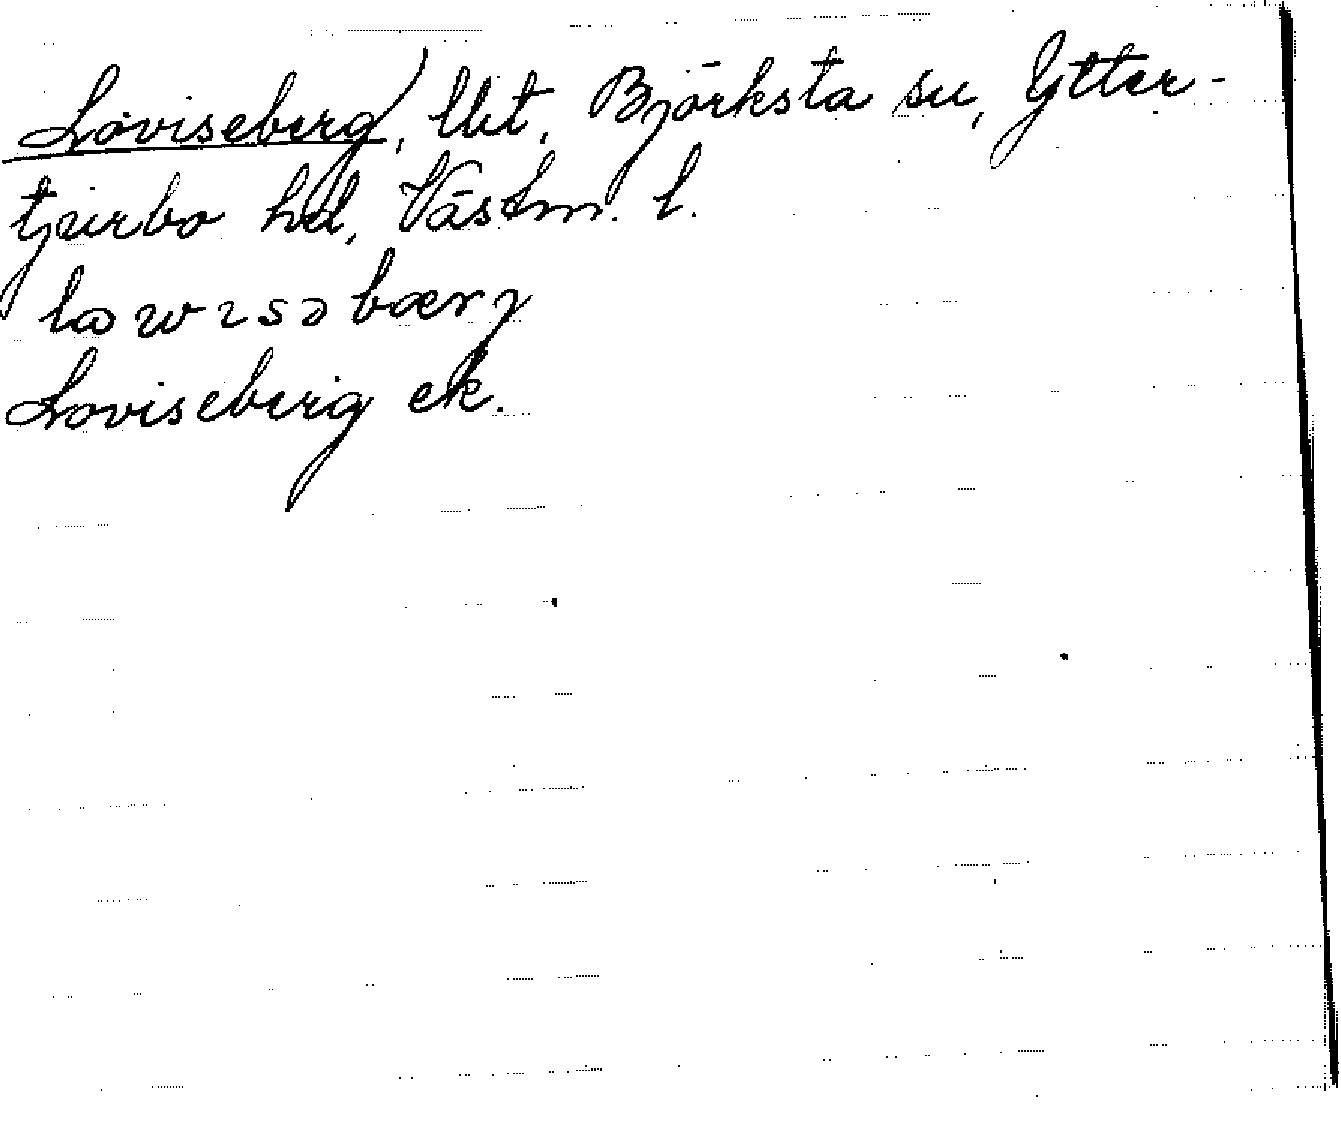 Loviseberg), lht, Björksta sn, Ytter-
tjurbo hd, Västm. l.
Loviseberg ek.